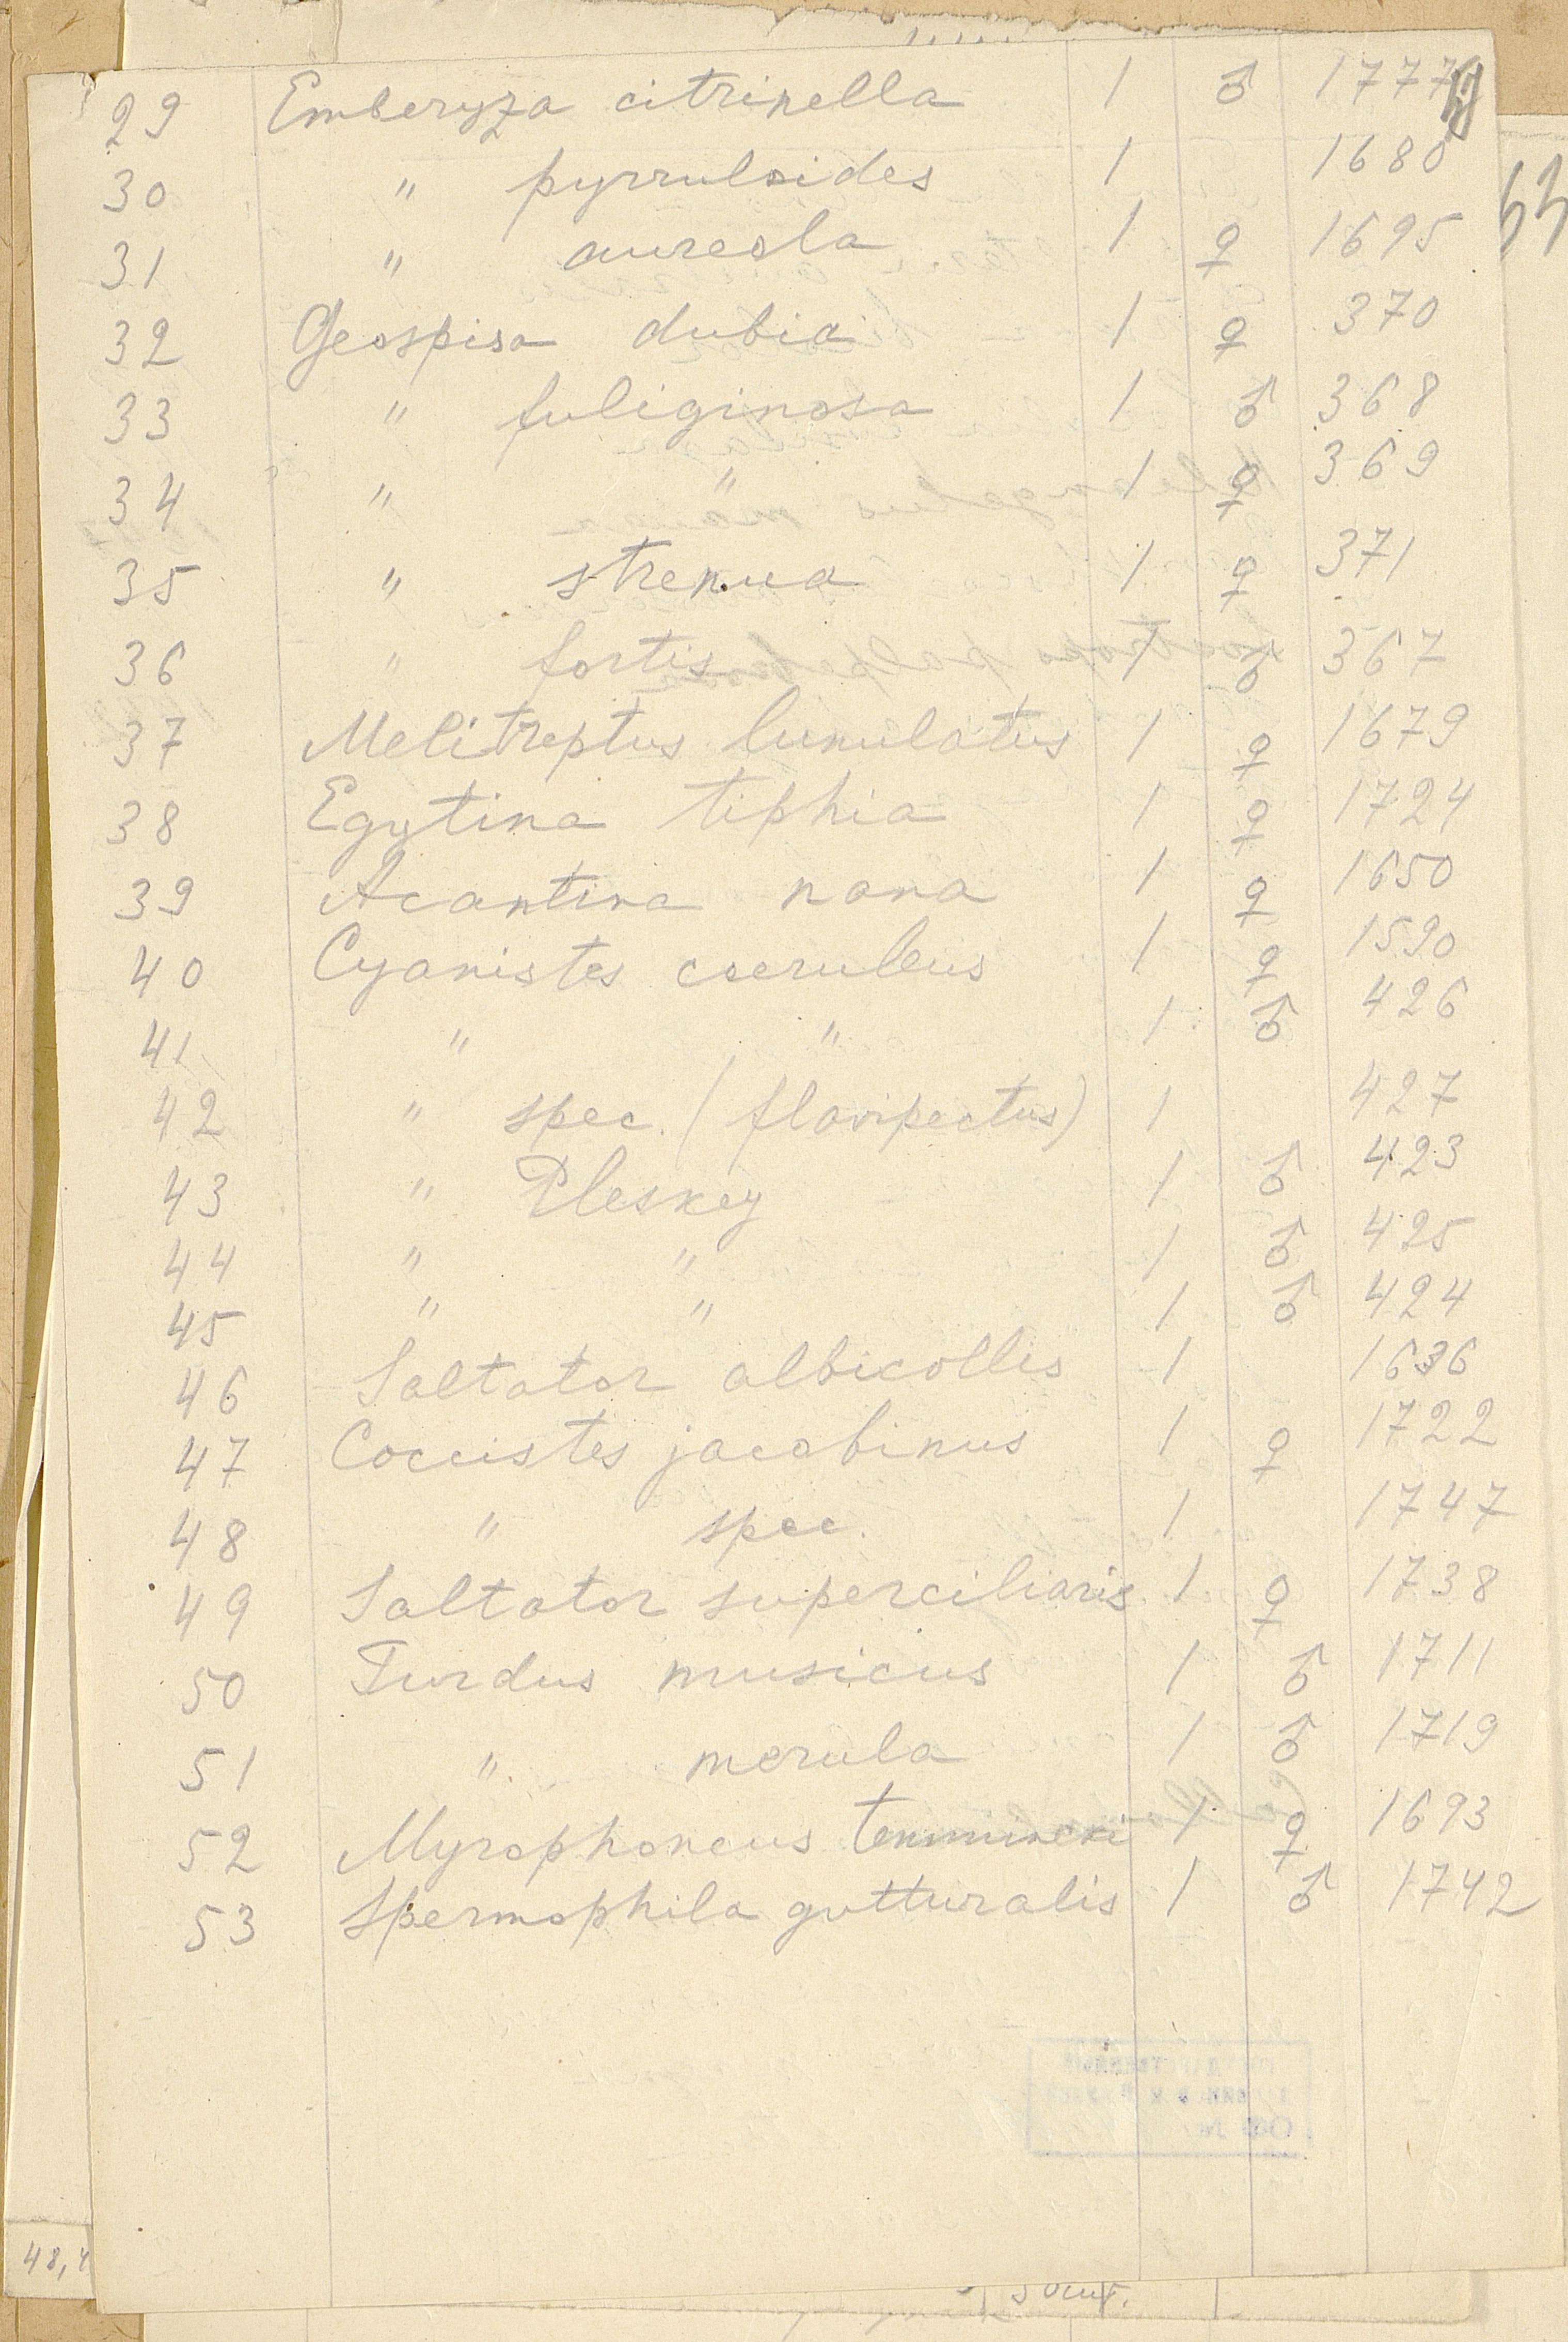 29 Emberyza citrinella 1 ♂ 1777
30 " pyrruloides 1 1680
31 " aureola 1 ♀ 1695
32 Geospisa dubia 1 ♀ 370
33 " fuliginosa 1 ♂ 368
34 " " 1 ♀ 369
35 " strenua 1 ♀ 371
36 " fortis 1 ♂ 367
37 Melitreptus lunulatus 1 ♀ 1679
38 Egytina tiphia 1 ♀ 1724
39 Acantina nana 1 ♀ 1650
40 Cyanistes coeruleus 1 ♀ 1590
41 " " 1 ♂ 426
42 " spec. (flavipectus) 1 427
43 " Pleskey 1 ♂ 423
44 " " 1 ♂ 425
45 " " 1 ♂ 424
46 Saltator albicollis 1 1636
47 Coccistes jacobinus 1 ♀ 1722
48 " spec. 1 1747
49 Saltator superciliaris 1 ♀ 1738
50 Turdus musicus 1 ♂ 1711
51 " merula 1 ♂ 1719
52 Myrophoneus temmincki 1 ♀ 1693
53 Spermophila gutturalis 1 ♂ 1742
48,4